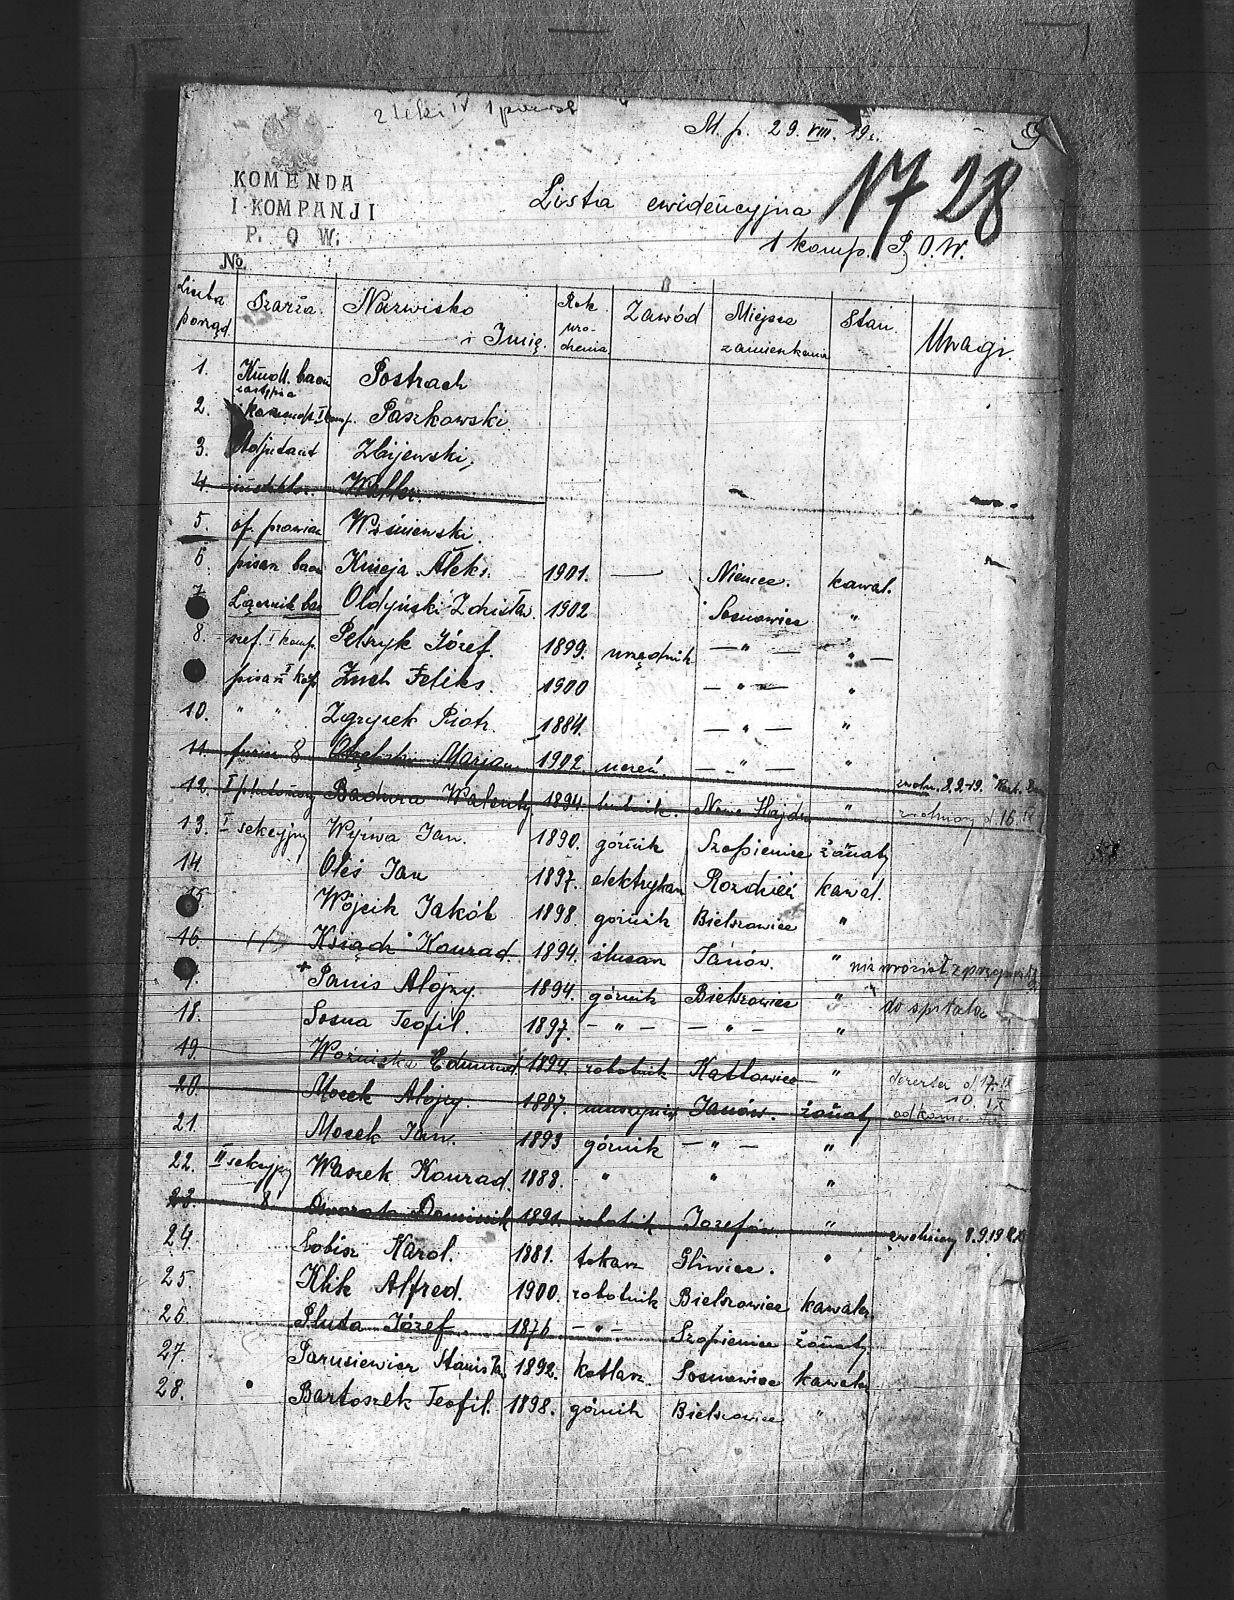 M. p. 29. VIII. 19 r.
17 28
KOMENDA
I KOMPANJI
P. O W.
No.
Lista ewidencyjna
1 komp. P. O. W.
Liczba porząd. Szarża. Nazwisko i Imię. Rok uro-dzenia Zawód Miejsce zamieszkania Stan. Uwagi.
1. Kmdt. baon Postrach
2. zastępca I komp. Paszkowski
3. Adjutant Zbijewski
4.
5. of. prowian Wiśniewski.
6 pisarz baon Kmieja Aleks. 1901. — Niemce. kawal.
7 Łącznik bao Oldyński Zdzisław 1902 Sosnowiec "
8. szef. I komp. Petszyk Józef. 1899. urzędnik — " — " —
pisarz I kop Żuch Feliks. 1900 — " — "
10. " " Zgrysek Piotr. 1884. — " — "
11. furier 8 Marjan 1902. uczeń. — " — " zwoln. 8.9.19.
12. I plutonowy Badura Walenty 1894. hutnik. Nowe Hajdu " zwolniony d. 16. IX
13. I sekcyjny Wyrwa Jan. 1890. górnik Szopienice żonaty
14. Oleś Jan 1897. elektrykarz Rozdzień kawal.
15 Wójcik Jakób 1898. górnik Bielszowice "
16. Ksiądz Konrad. 1894. ślusarz Janów. " nie wrócił z
+ Panis Alojzy. 1894. górnik Bielszowice " do szpitala
18. Sosna Teofil. 1897. — " — — " — "
19. Woźniczka Edmund 1894. robotnik Kattowice " dezerter d. 17. IX
20. Mocek Alojzy. 1887. maszynis Janów. żonaty 10. IX
21. Mocek Jan. 1893 górnik — " — "
22. II sekcyjny Waszek Konrad. 1888. " " "
23. 8 Dominik 1891. robotnik Józefów " zwolniony 8.9.19
24. Sobisz Karol. 1881. tokarz Gliwice. "
25 Klik Alfred. 1900. robotnik Bielszowice kawaler
26 Pluta Józef. 1876. — " — Szopienice żonaty
27. Parusiewicz Stanisła 1892. kotlarz. Sosnowiec kawaler
28. Bartoszek Teofil. 1898. górnik Bielszowice "